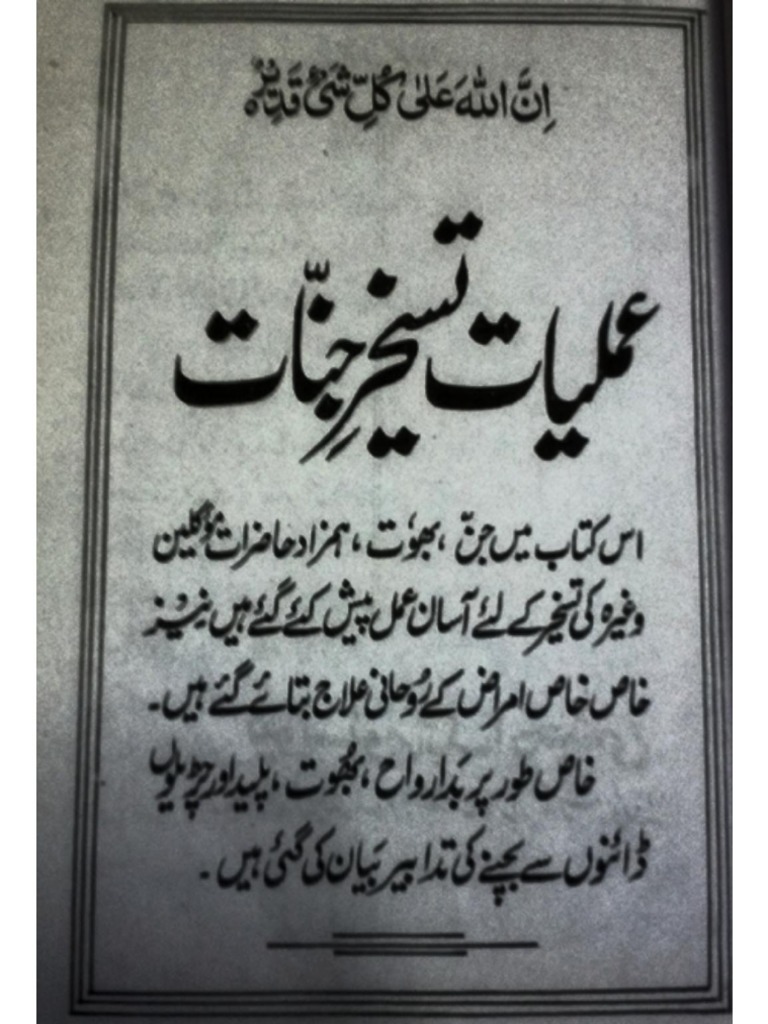 اِنَّ اللهَ عَلٰى كُلِّ شَیْءٍ قَدِیْرٌ
عملیات تسخیرِ جنّات
اس کتاب میں جنّ ، بھوت ، ہمزاد حاضرات مؤکلین
وغیرہ کی تسخیر کے لئے آسان عمل پیش کئے گئے ہیں نیز
خاص خاص امراض کے رُوحانی علاج بتائے گئے ہیں۔
خاص طور پر بَد ارواح ، بھُوت ، پلید اور چڑیلوں
ڈائنوں سے بچنے کی تدابیر بیان کی گئی ہیں ۔